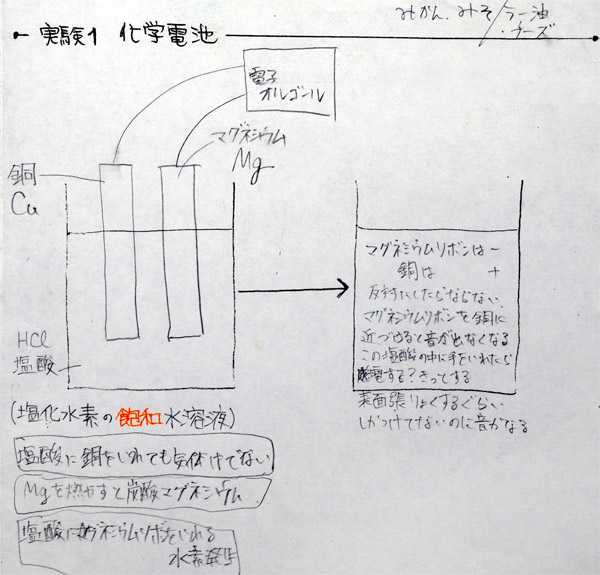 みかん、みそ/ラー油
・チーズ
実験1 化学電池
電子
オルゴール
マグネシウム
Mg
銅
Cu
HCl
塩酸
マグネシウムリボンは −
銅は +
反対にしたらならない、
マグネシウムリボンを銅に
近づけると音が出なくなる
この塩酸の中に手をいれたら
感電する?きっとする
表面張りょくするぐらい
しかつけてないのに音がなる
(塩化水素の飽和水溶液)
塩酸に銅をいれても気体はでない
Mgを燃やすと炭酸マグネシウム
塩酸にマグネシウムリボンをいれる
水素発生